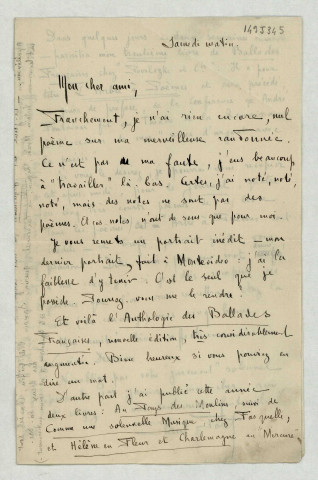 149J345
Samedi matin.
Mon cher ami,
Franchement, je n'ai rien encore, nul
poème sur ma merveilleuse randonnée.
Ce n'est pas ma faute, j'eus beaucoup
à "travailler" là-bas. Certes, j'ai noté, noté,
noté, mais des notes ne sont pas des
poèmes. Et ces notes n'ont de sens que pour moi.
Je vous remets un portrait inédit – mon
dernier portrait, fait à Montevideo : j'ai la
faiblesse d'y tenir. C'est le seul que je
possède. Pourrez-vous me le rendre.
Et voilà l'Anthologie des Ballades
Françaises, nouvelle édition, très considérablement
augmentée. Bien heureux si vous pouvez en
dire un mot.
D'autre part j'ai publié cette année
deux livres : Au Pays des Moulins, suivi de
Comme une solennelle Musique chez Fasquelle,
et Hélène en Fleur et Charlemagne au Mercure